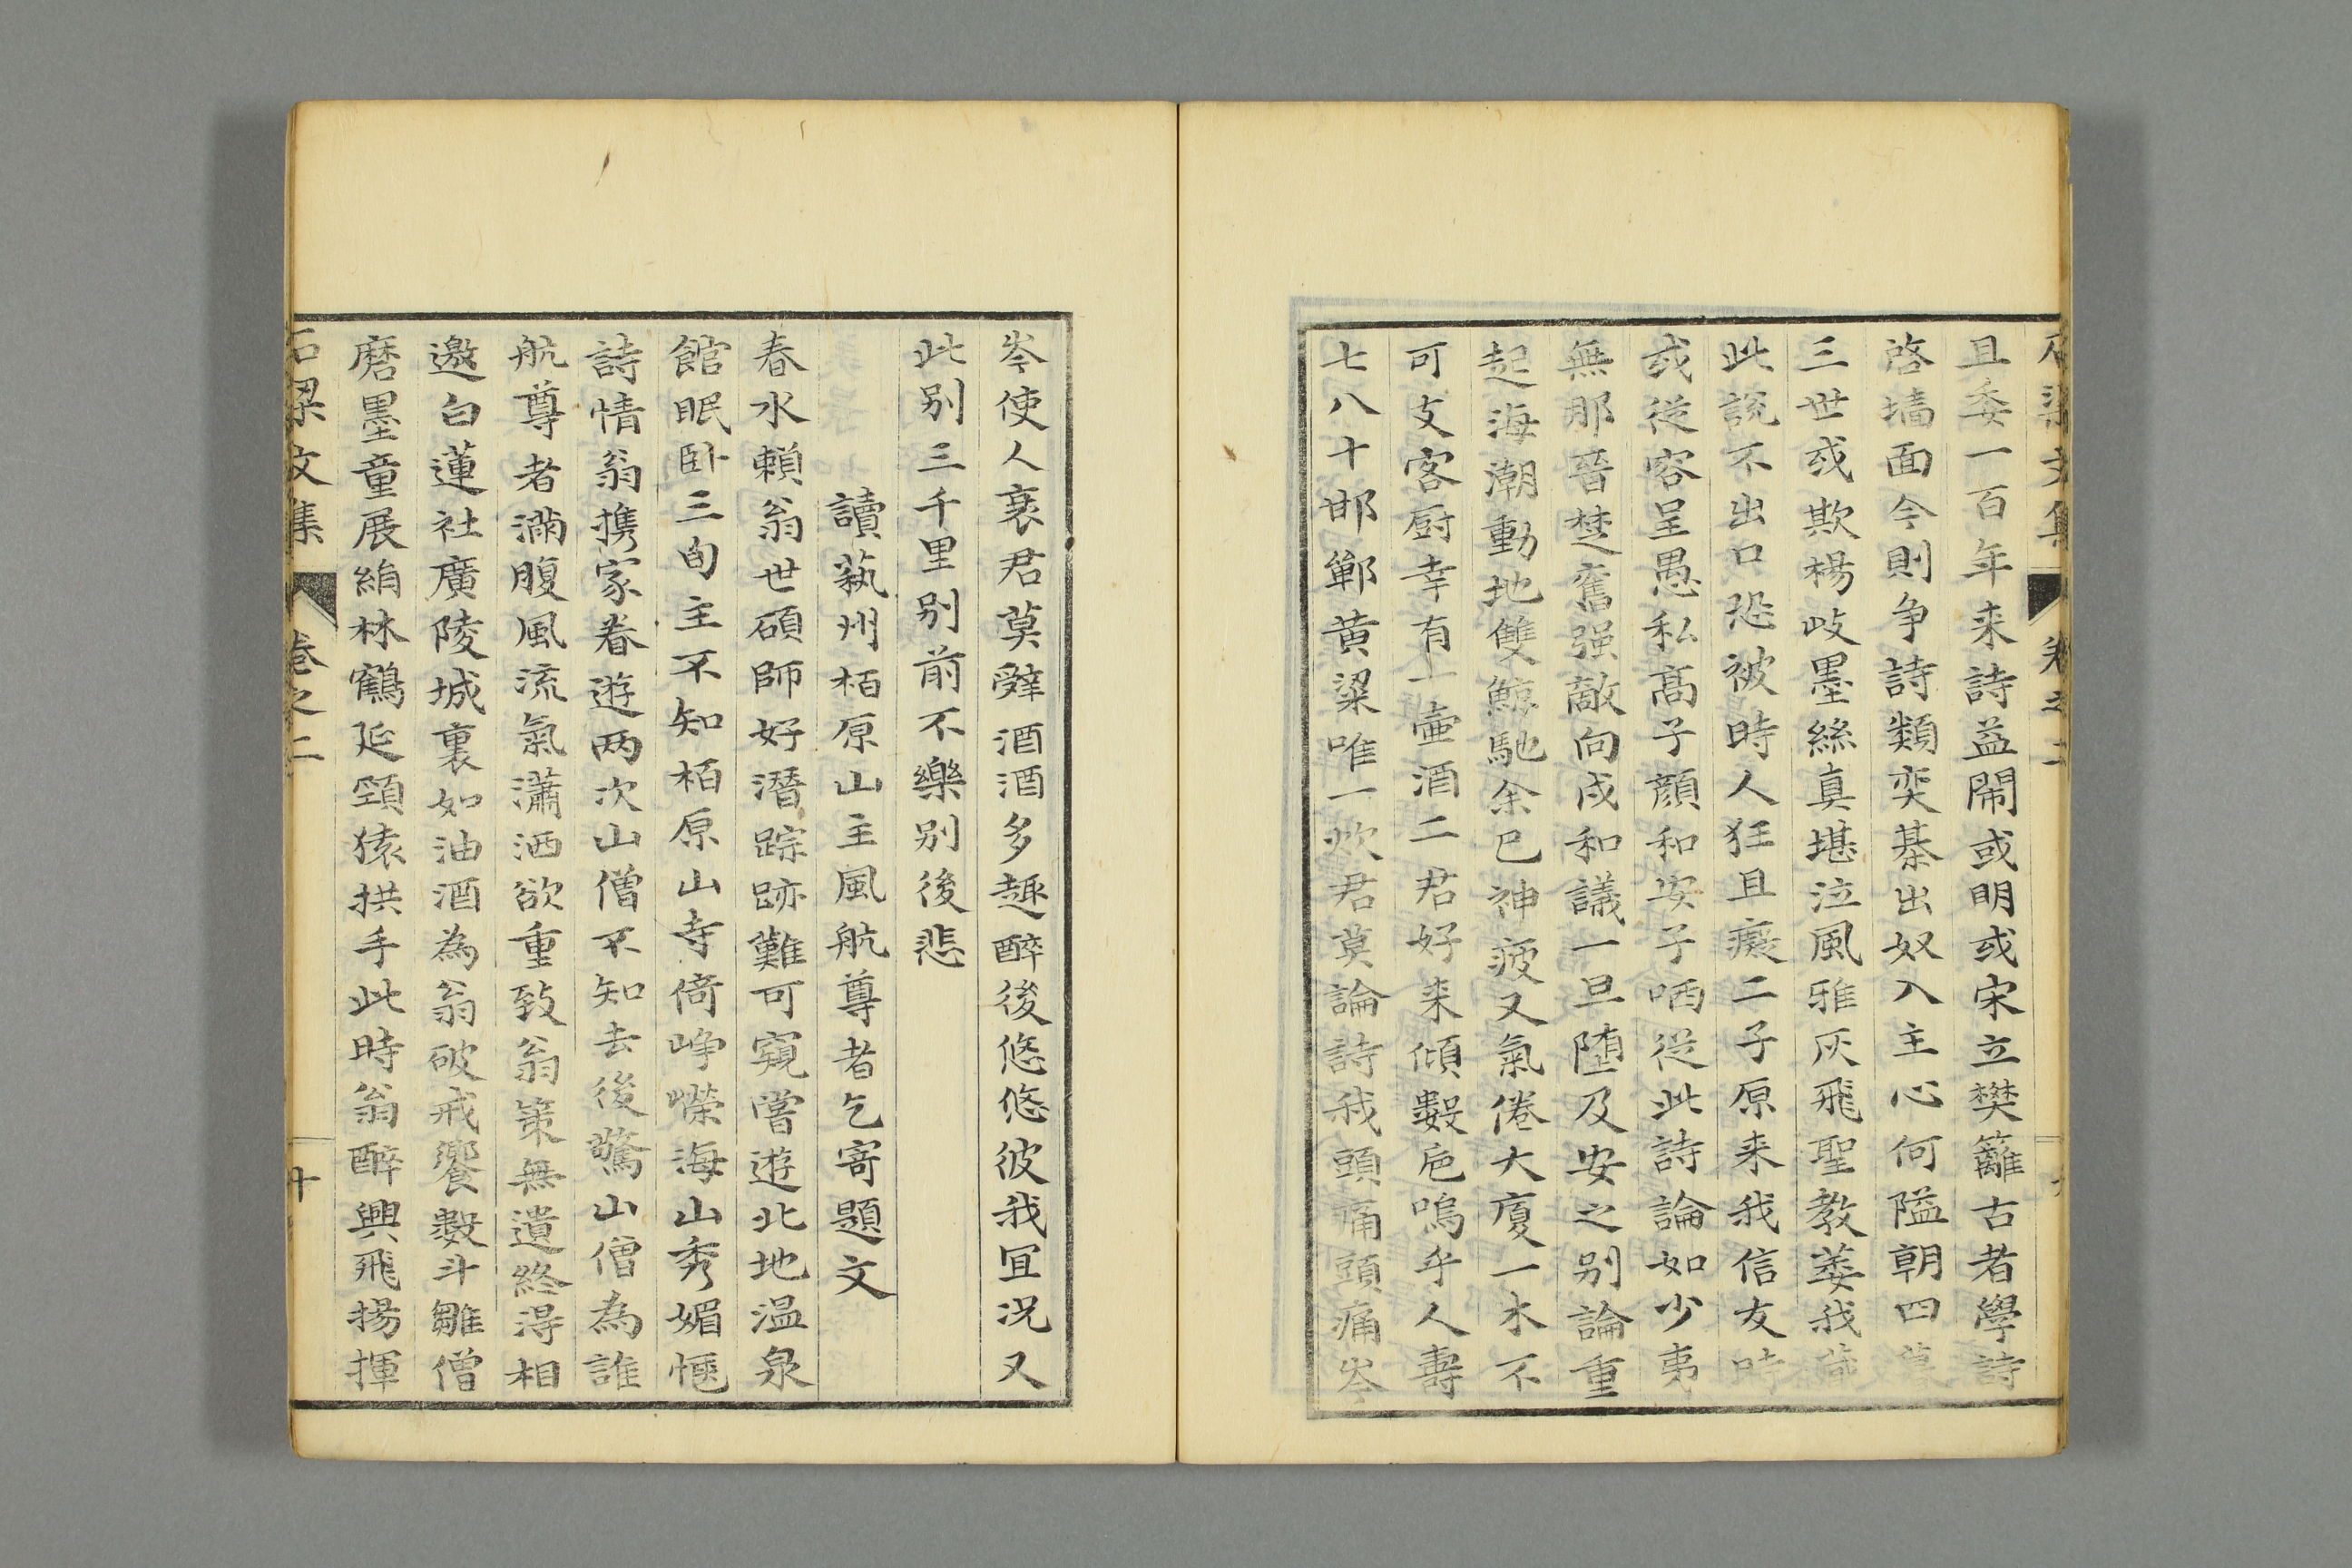 石梁文集 卷之二
且委一百年来詩益鬧或明或宋立樊籬古者學詩
啓墻面今則争詩類奕棊出奴入主心何隘朝四暮
三世或欺楊岐墨絲真堪泣風雅灰飛聖教萎我
此說不出口恐被時人狂且癡二子原来我信友時
或従容呈愚私髙子顔和安子哂従此詩論如少夷
無那晉楚奮强敵向戌和議一旦墮及安之别論重
起海潮動地雙鯨馳余已神疲又氣倦大廈一木不
可支客厨幸有一壷酒二君好来傾數巵嗚乎人壽
七八十邯鄲黄粱唯一炊君莫論詩我頭痛頭痛岑
岑使人衰君莫辭酒酒多趣醉後悠悠彼我冝况又
此别三千里别前不樂别後悲
讀藝州栢原山主風航尊者乞寄題文
春水賴翁世碩師好潛踪跡難可窺嘗遊北地温泉
館眠卧三旬主不知栢原山寺倚崢嶸海山秀媚愜
詩情翁携家眷遊两次山僧不知去後驚山僧為誰
航尊者滿腹風流氣瀟洒欲重致翁策無遺終得相
邀白蓮社廣陵城裏如油酒為翁破戒饗數斗雛僧
磨墨童展絹林鶴延頸猿拱手此時翁醉興飛揚揮
石梁文集 卷之二 十